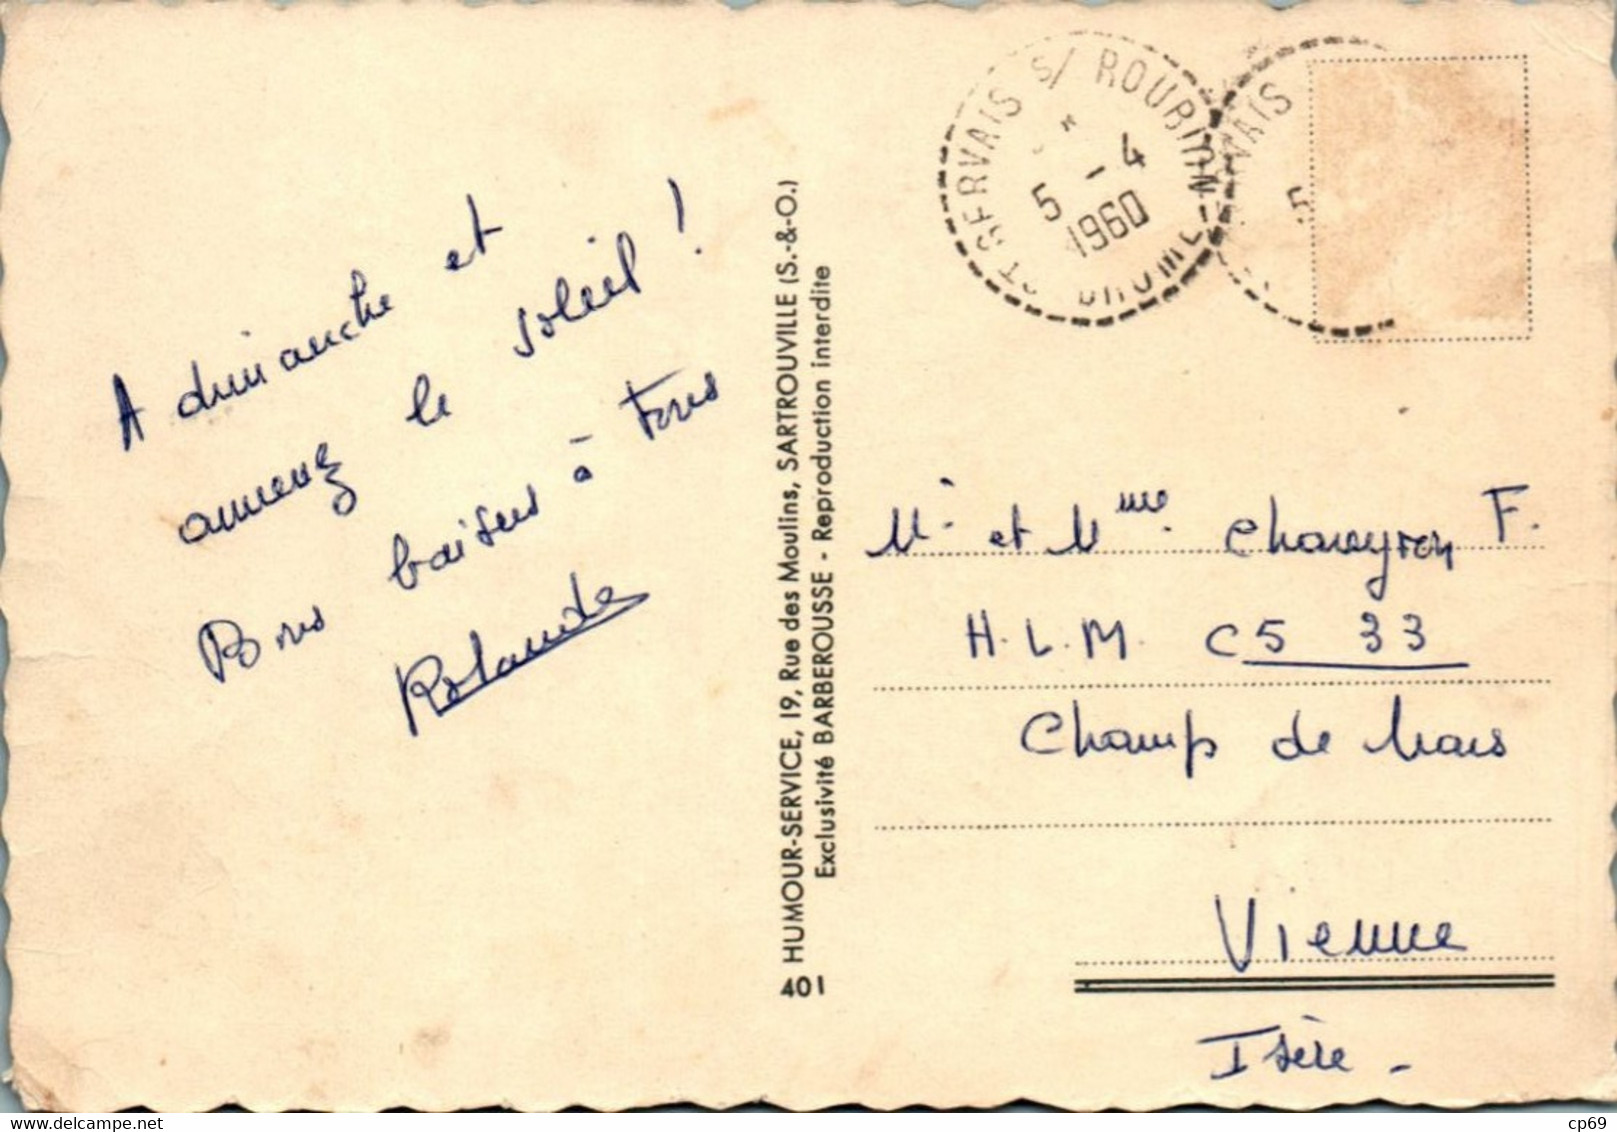 A dimanche et
amenez le soleil !
Bons baisers à tous
Rolande
401 HUMOUR-SERVICE, 19, Rue des Moulins, SARTROUVILLE (S.-&-O.)
Exclusivité BARBEROUSSE - Reproduction interdite
ST SERVAIS S/ ROUBION DROME
5 - 4
1960
VAIS
5
Mr et Mme Chaveyron F.
H.L.M. C5 33
Champ de Mars
Vienne
Isère -
delcampe.net
cp69